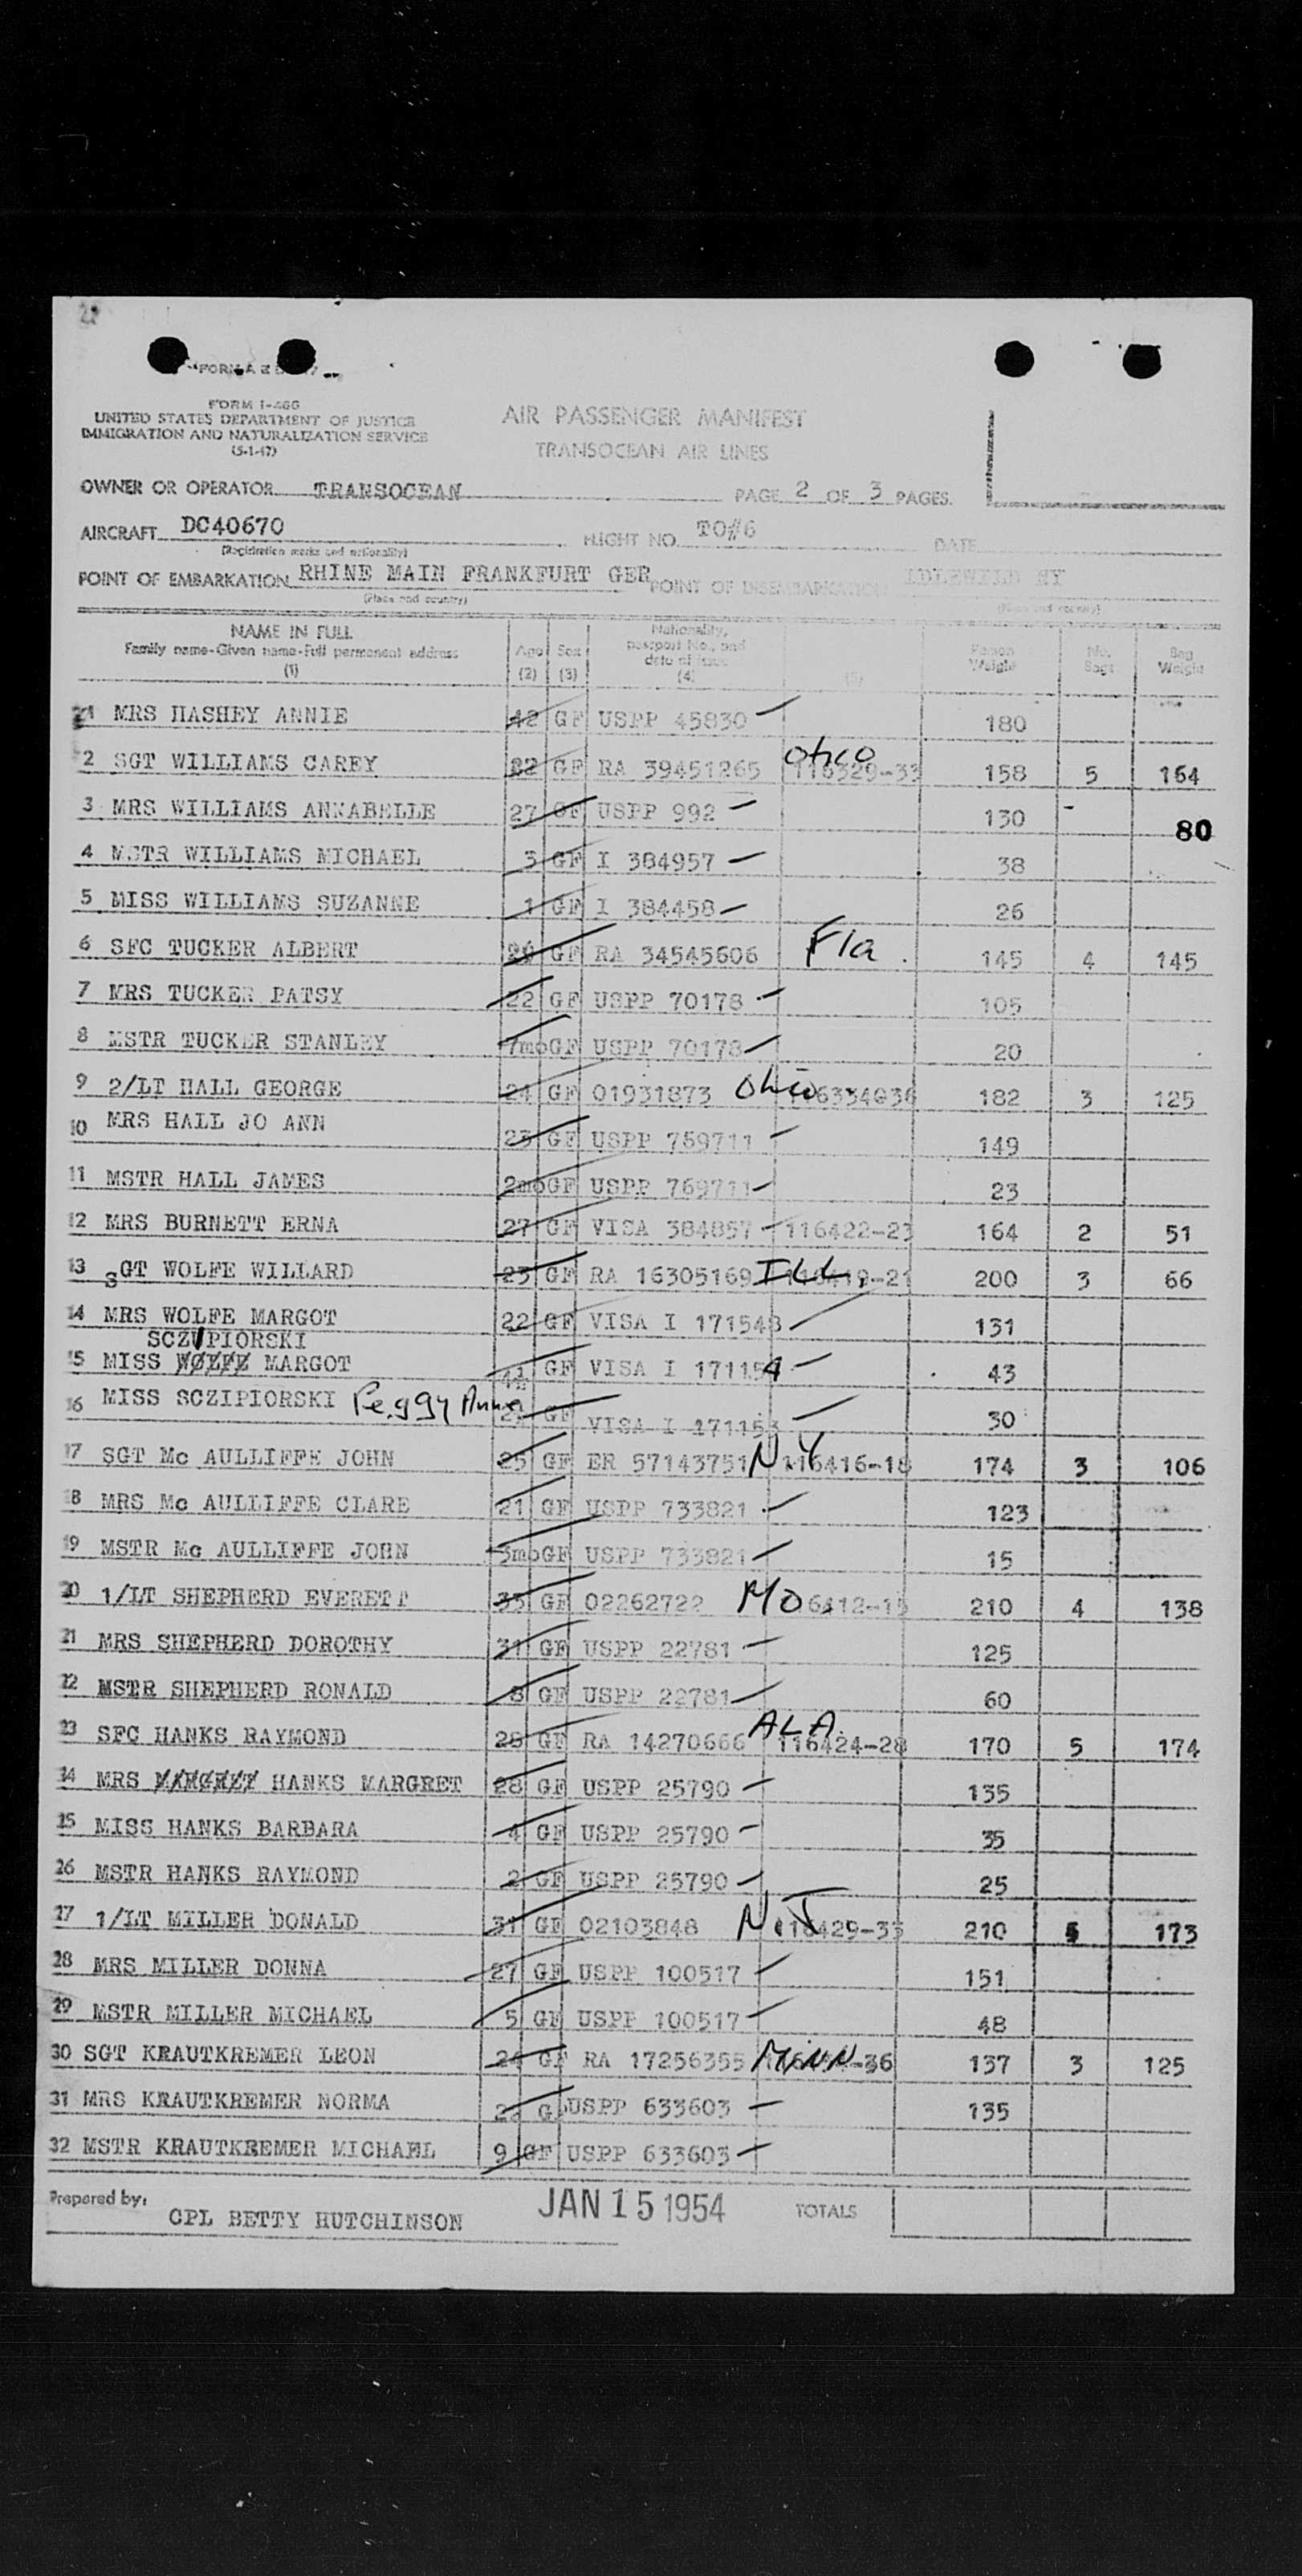 FORM I-466
UNITED STATES DEPARTMENT OF JUSTICE
IMMIGRATION AND NATURALIZATION SERVICE
(5-1-47)
AIR PASSENGER MANIFEST
TRANSOCEAN AIR LINES
OWNER OR OPERATOR TRANSOCEAN PAGE 2 OF 3 PAGES.
AIRCRAFT DC40670 FLIGHT NO. TO#6 DATE
(Registration marks and nationality)
POINT OF EMBARKATION RHINE MAIN FRANKFURT GER POINT OF DISEMBARKATION IDLEWILD NY
(Place and country) (Place and country)
NAME IN FULL
Family name-Given name-Full permanent address
(1)
Age (2) Sex (3) Nationality, passport No., and date of issue (4) (5) Person Weight No. Bags Bag Weight
1 MRS HASHEY ANNIE 42 GF USPP 45830 180
2 SGT WILLIAMS CAREY 32 GF RA 39451265 Ohio 116329-33 158 5 164
3 MRS WILLIAMS ANNABELLE 27 GF USPP 992 130 80
4 MSTR WILLIAMS MICHAEL 3 GF I 384957 38
5 MISS WILLIAMS SUZANNE 1 GF I 384458 26
6 SFC TUCKER ALBERT GF RA 34545606 Fla. 145 4 145
7 MRS TUCKER PATSY 22 GF USPP 70178 105
8 MSTR TUCKER STANLEY 7mo GF USPP 70178 20
9 2/LT HALL GEORGE 24 GF 01931873 Ohio 182 3 125
10 MRS HALL JO ANN 23 GF USPP 769711 149
11 MSTR HALL JAMES 2mo GF USPP 769711 23
12 MRS BURNETT ERNA 27 GF VISA 384857 116422-23 164 2 51
13 SGT WOLFE WILLARD 23 GF RA 16305169 ILL. 116419-21 200 3 66
14 MRS WOLFE MARGOT 22 GF VISA I 171548 131
SCZIPIORSKI
15 MISS WOLFE MARGOT GF VISA I 171154 43
16 MISS SCZIPIORSKI Peggy Anna GF VISA I 171153 30
17 SGT Mc AULLIFFE JOHN 25 GF ER 57143751 NY 116416-18 174 3 106
18 MRS Mc AULLIFFE CLARE 21 GF USPP 733821 123
19 MSTR Mc AULLIFFE JOHN 3mo GF USPP 733821 15
20 1/LT SHEPHERD EVERETT 33 GF 02262722 MO. 6412-15 210 4 138
21 MRS SHEPHERD DOROTHY 31 GF USPP 22781 125
22 MSTR SHEPHERD RONALD 8 GF USPP 22781 60
23 SFC HANKS RAYMOND 28 GF RA 14270666 ALA. 116424-28 170 5 174
24 MRS HANKS MARGRET 28 GF USPP 25790 135
25 MISS HANKS BARBARA 4 GF USPP 25790 35
26 MSTR HANKS RAYMOND 2 GF USPP 25790 25
27 1/LT MILLER DONALD 31 GF 02103848 N.J 116429-33 210 5 173
28 MRS MILLER DONNA 27 GF USPP 100517 151
29 MSTR MILLER MICHAEL 5 GF USPP 100517 48
30 SGT KRAUTKREMER LEON 24 GF RA 17256355 MINN -36 137 3 125
31 MRS KRAUTKREMER NORMA USPP 633603 135
32 MSTR KRAUTKREMER MICHAEL 9 GF USPP 633603
Prepared by: CPL BETTY HUTCHINSON JAN 15 1954 TOTALS